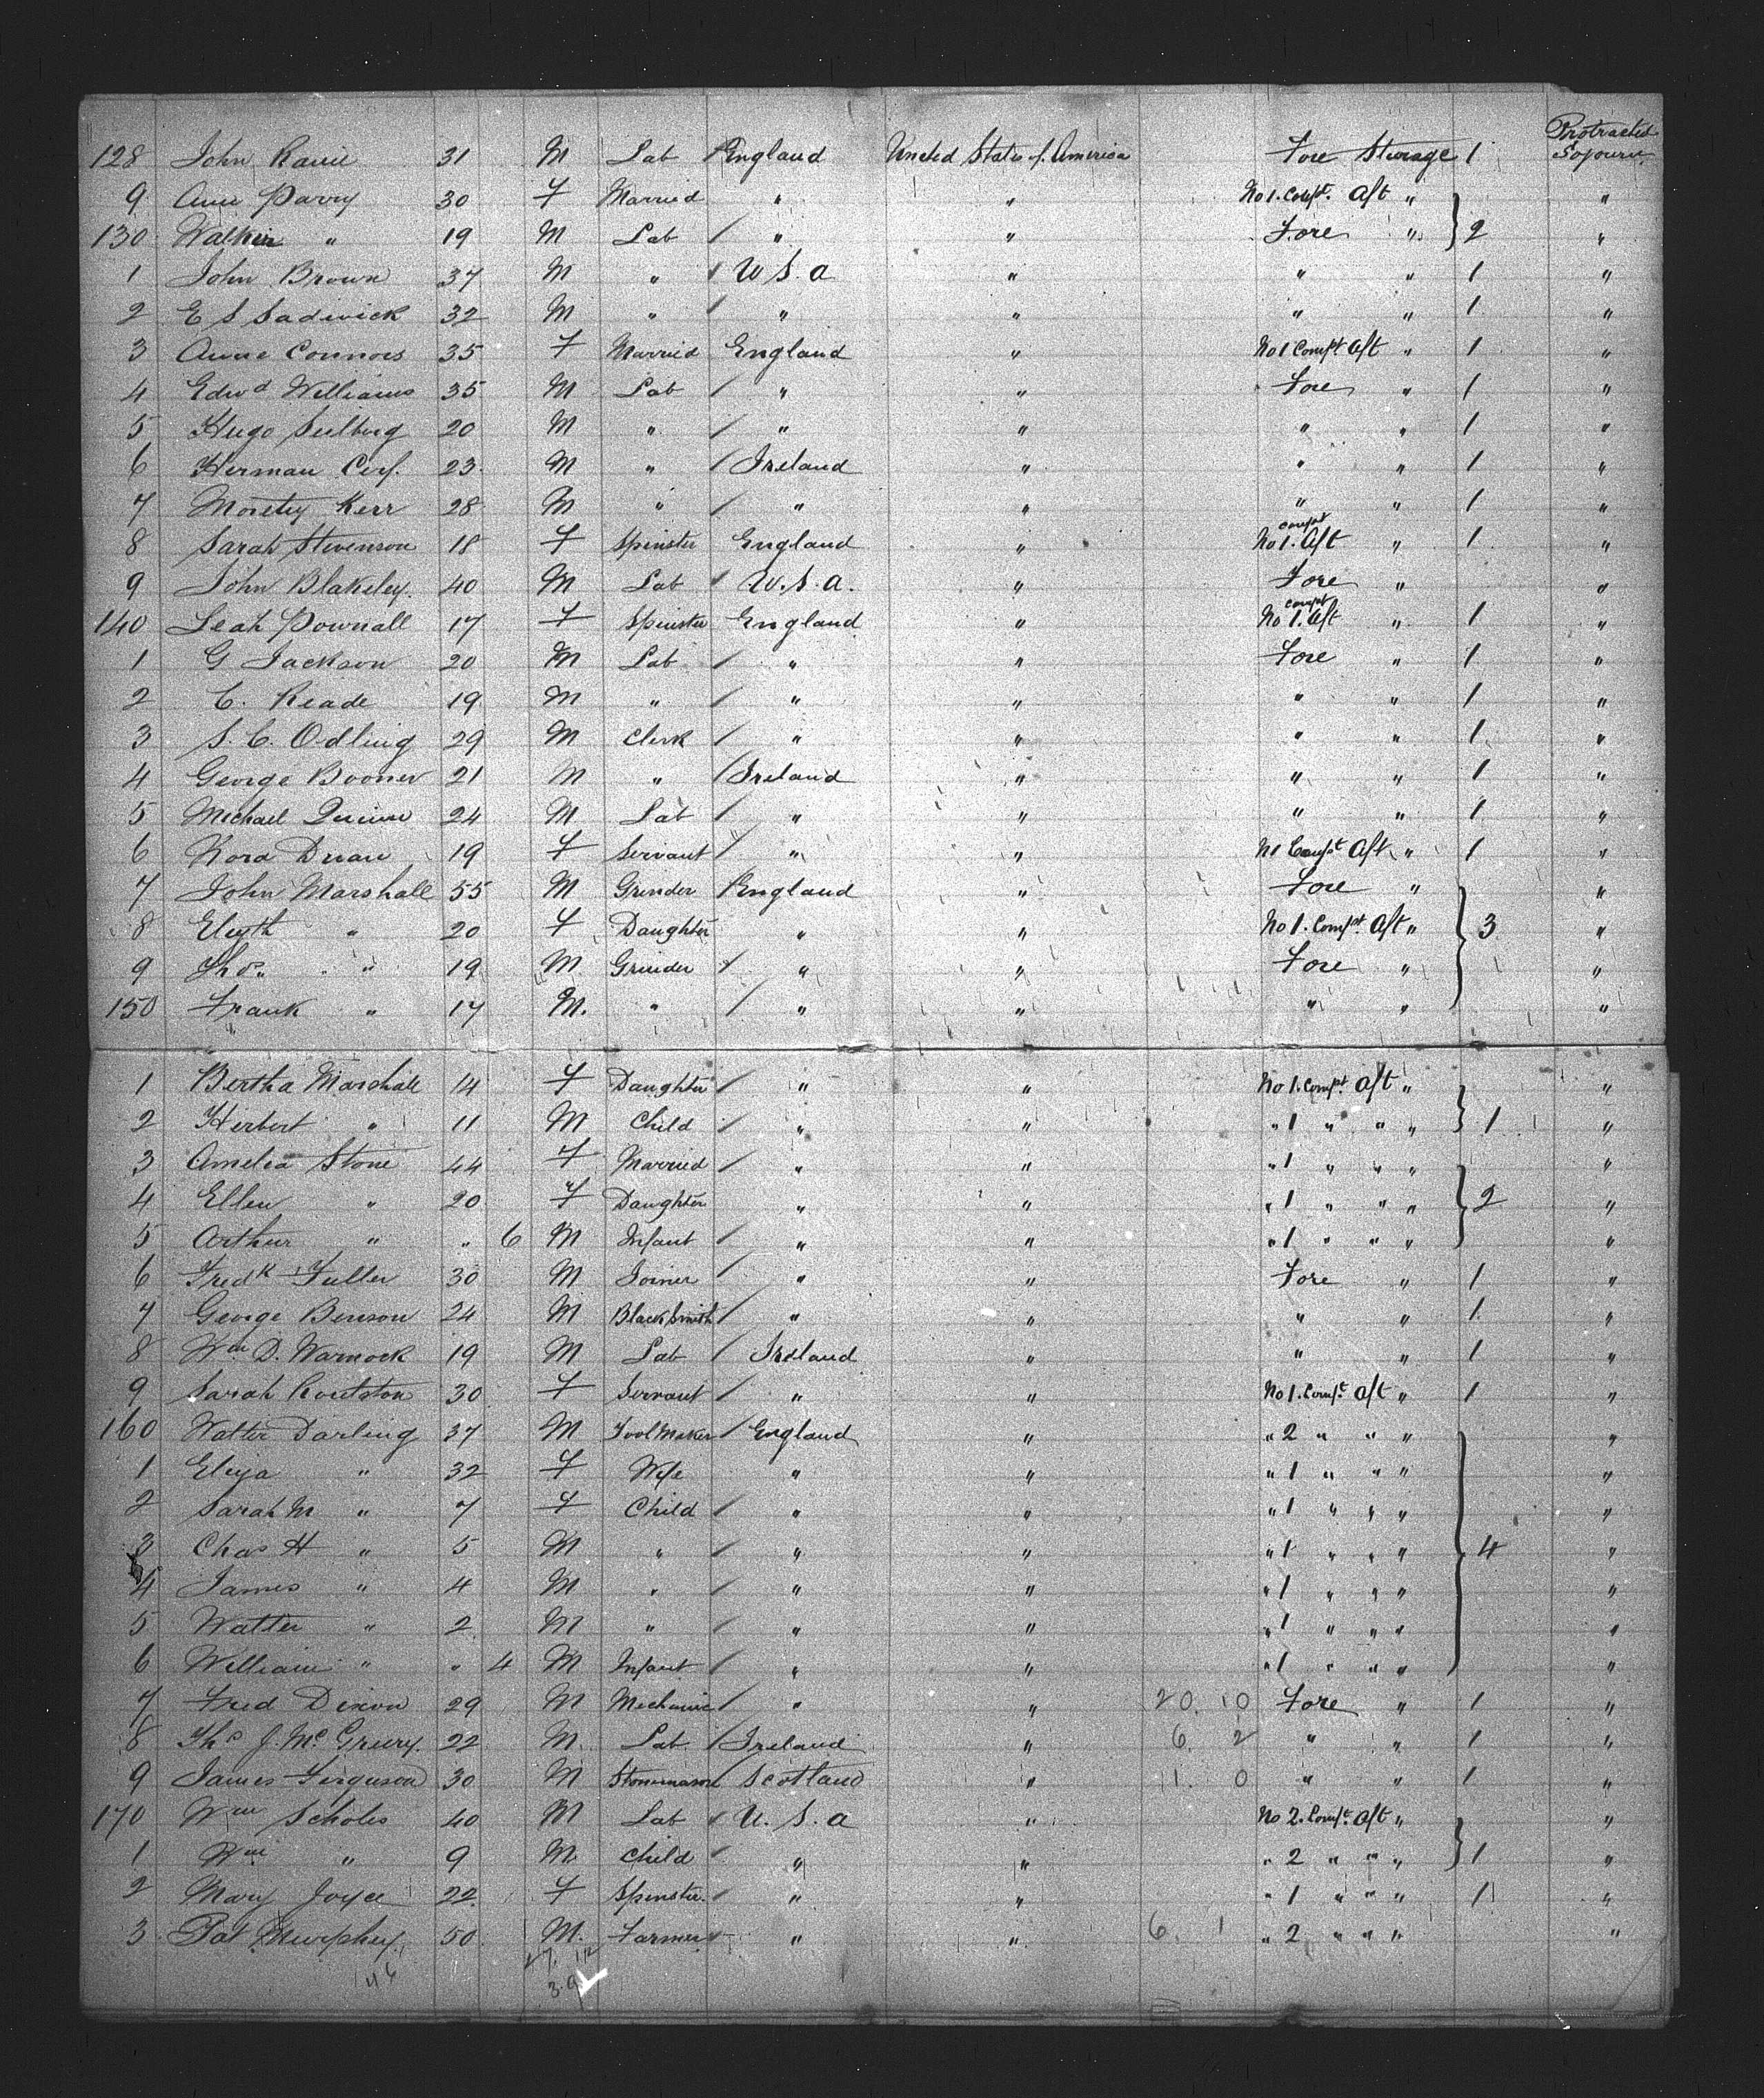 Protracted
128 John Ravie 31 M Lab England United States of America Fore Steerage 1 Sojourn
9 Ann Parry 30 F Married " " No 1. Compt. Aft " "
130 " 19 M Lab " " Fore " 2 "
1 John Brown 37 M " U S. A " " " 1 "
2 E S Sadwick 32 M " " " " " 1 "
3 Anne Connors 35 F Married England " No 1 Compt Aft " 1 "
4 Edwd Williams 35 M Lab " " Fore " 1 "
5 Hugo 20 M " " " " " 1 "
6 Herman Cerf. 23 M " Ireland " " " 1 "
7 Kerr 28 M " " " " " 1 "
8 Sarah Stevenson 18 F Spinster England " No 1. compt Aft " 1 "
9 John Blakeley. 40 M Lab U. S. A. " Fore " "
140 Leah Pownall 17 F Spinster England " No 1. compt Aft " 1 "
1 G Jackson 20 M Lab " " Fore " 1 "
2 C. Reade 19 M " " " " " 1 "
3 S. C. Odling 29 M Clerk " " " " 1 "
4 George Booner 21 M " Ireland " " " 1 "
5 Michael Quinn 24 M Lab " " " " 1 "
6 Nora 19 F Servant " " N 1 Compt Aft " 1 "
7 John Marshall 55 M Grinder England " Fore " "
8 " 20 F Daughter " " No 1. Compt Aft " 3 "
9 Thos " 19 M Grinder " " Fore " "
150 Frank " 17 M. " " " " " "
1 Bertha Marshall 14 F Daughter " " No 1. Compt Aft " "
2 Herbert " 11 M Child " " " 1 " " " 1 "
3 Amelia Stone 44 F Married " " " 1 " " " "
4 Ellen " 20 F Daughter " " " 1 " " " 2 "
5 Arthur " " 6 M Infant " " " 1 " " " "
6 Fredk Fuller 30 M Joiner " " Fore " 1 "
7 George Benson 24 M BlackSmith " " " " 1 "
8 Wm D. Warnock 19 M Lab Ireland " " " 1 "
9 Sarah Roulston 30 F Servant " " No 1. Compt Aft " 1 "
160 Walter Darling 37 M Tool Maker England " " 2 " " " "
1 Eliza " 32 F Wife " " " 1 " " " "
2 Sarah M " 7 F Child " " " 1 " " " "
3 Chas H " 5 M " " " " 1 " " " 4 "
4 James " 4 M " " " " 1 " " " "
5 Walter " 2 M " " " " 1 " " " "
6 William " " 4 M Infant " " " 1 " " " "
7 Fred Dixon 29 M Mechanic " " 20. 10 Fore " 1 "
8 Ths J. Mc 22 M Lab Ireland " 6. 2 " " 1 "
9 James Ferguson 30 M Stonemason Scotland " 11. 0 " " 1 "
170 Wm Scholes 40 M Lab U. S. A " No 2. Compt. Aft " "
1 Wm " 9 M Child " " " 2 " " " 1 "
2 Mary Joyce 22 F Spinster. " " " 1 " " " 1 "
3 Pat Murphey 50 M. Farmer " " 6. 1 " 2 " " " "
46 27. 12
3.9